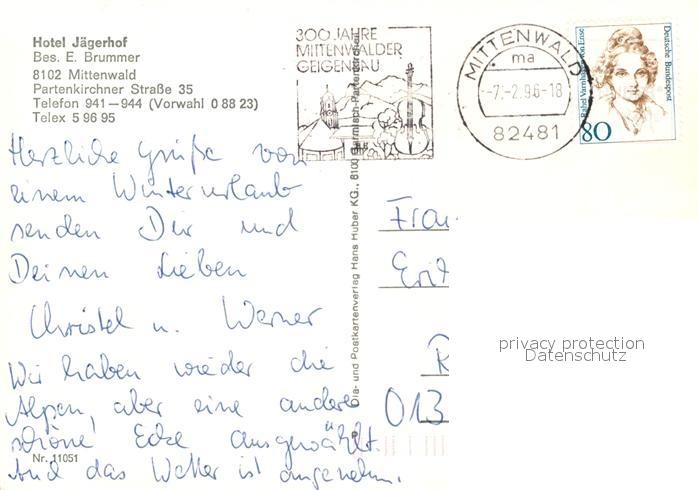 Hotel Jägerhof
Bes. E. Brummer
8102 Mittenwald
Partenkirchner Straße 35
Telefon 941–944 (Vorwahl 0 88 23)
Telex 5 96 95
300 JAHRE
MITTENWALDER
GEIGENBAU
MITTENWALD
ma
-7.-2.96-18
82481
Deutsche Bundespost
80
Herzliche Grüße von
einem Winterurlaub
senden Dir und
Deinen Lieben
Christel u. Werner
Wir haben wieder die
Alpen, aber eine andere
schöne Ecke ausgewählt.
Und das Wetter ist angenehm.
Nr. 11051
Dia- und Postkartenverlag Hans Huber KG., 8100 Garmisch-Partenkirchen
Frau
013
privacy protection
Datenschutz